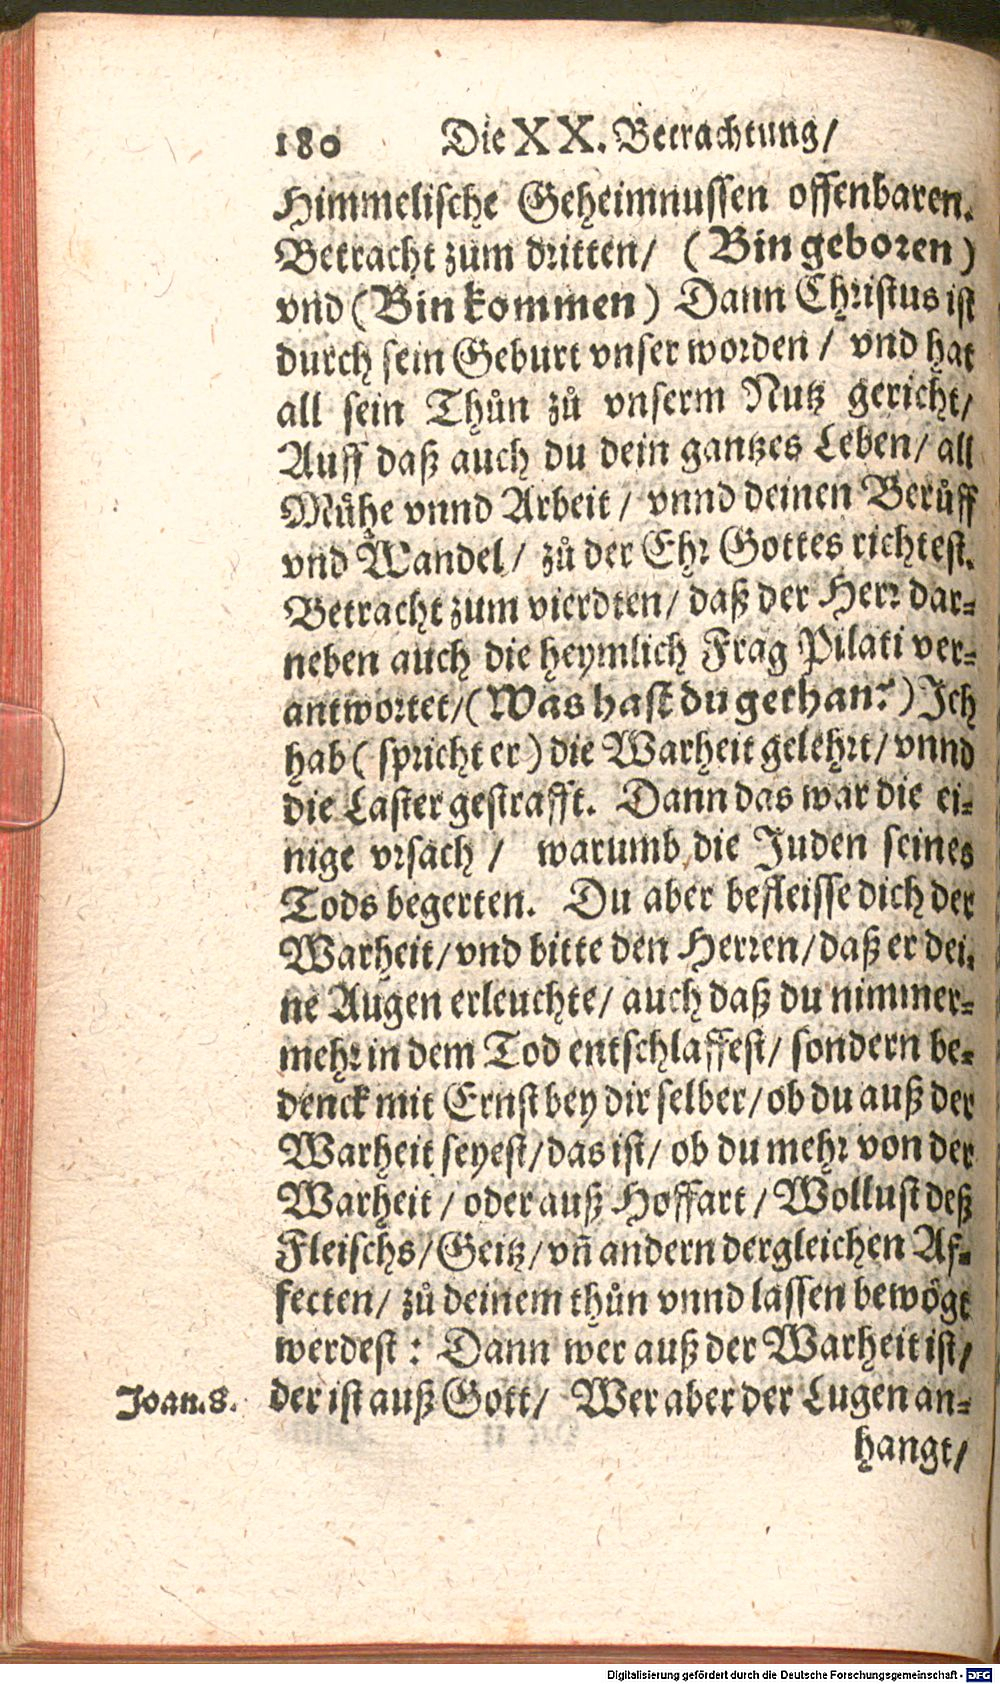 180 Die XX. Betrachtung/
Himmelische Geheimnussen offenbaren.
Betracht zum dritten/ (Bin geboren)
vnd (Bin kommen) Dann Christus ist
durch sein Geburt vnser worden / vnd hat
all sein Thůn zů vnserm Nutz gericht/
Auff daß auch du dein gantzes Leben/ all
Mühe vnnd Arbeit / vnnd deinen Berůff
vnd Wandel/ zů der Ehr Gottes richtest.
Betracht zum vierdten/ daß der Herr dar-
neben auch die heymlich Frag Pilati ver-
antwortet/ (Was hast du gethan?) Ich
hab ( spricht er) die Warheit gelehrt/ vnnd
die Laster gestrafft. Dann das war die ei-
nige vrsach / warumb die Juden seines
Tods begerten. Du aber befleisse dich der
Warheit/ vnd bitte den Herren/ daß er dei-
ne Augen erleuchte/ auch daß du nimmer-
mehr in dem Tod entschlaffest/ sondern be-
denck mit Ernst bey dir selber/ ob du auß der
Warheit seyest/ das ist/ ob du mehr von der
Warheit / oder auß Hoffart / Wollust deß
Fleischs/ Geitz/ vñ andern dergleichen Af-
fecten/ zů deinem thůn vnnd lassen bewögt
werdest : Dann wer auß der Warheit ist/
Joan.8. der ist auß Gott/ Wer aber der Lugen an-
hangt/
Digitalisierung gefördert durch die Deutsche Forschungsgemeinschaft - DFG